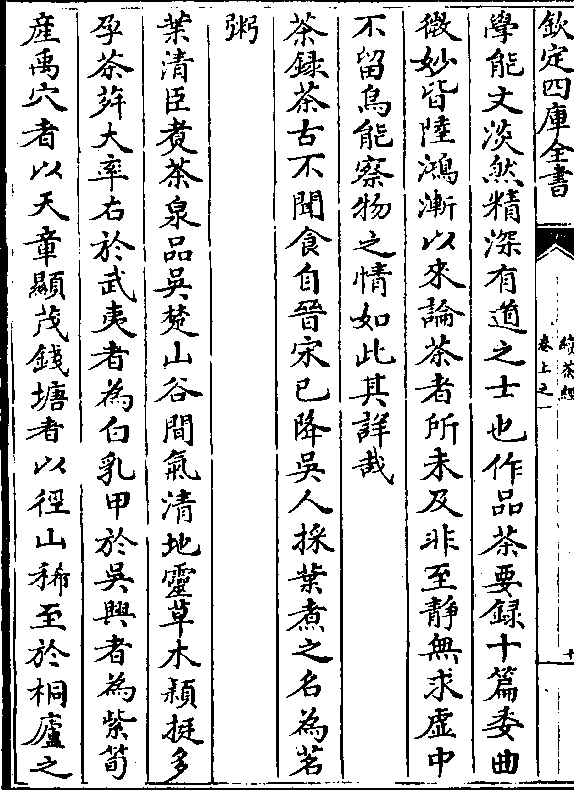 欽定四庫全書
續茶經
卷上之一
十
學能文淡然精深有道之士也作品茶要録十篇委曲
微妙皆陸鴻漸以來論茶者所未及非至靜無求虛中
不留烏能察物之情如此其詳哉
茶録茶古不聞食自晉宋已降吳人採葉煮之名為茗
粥
葉清臣煑茶泉品吳楚山谷間氣清地靈草木穎挺多
孕茶荈大率右於武夷者為白乳甲於吳興者為紫筍
産禹穴者以天章顯茂錢塘者以徑山稀至於桐廬之